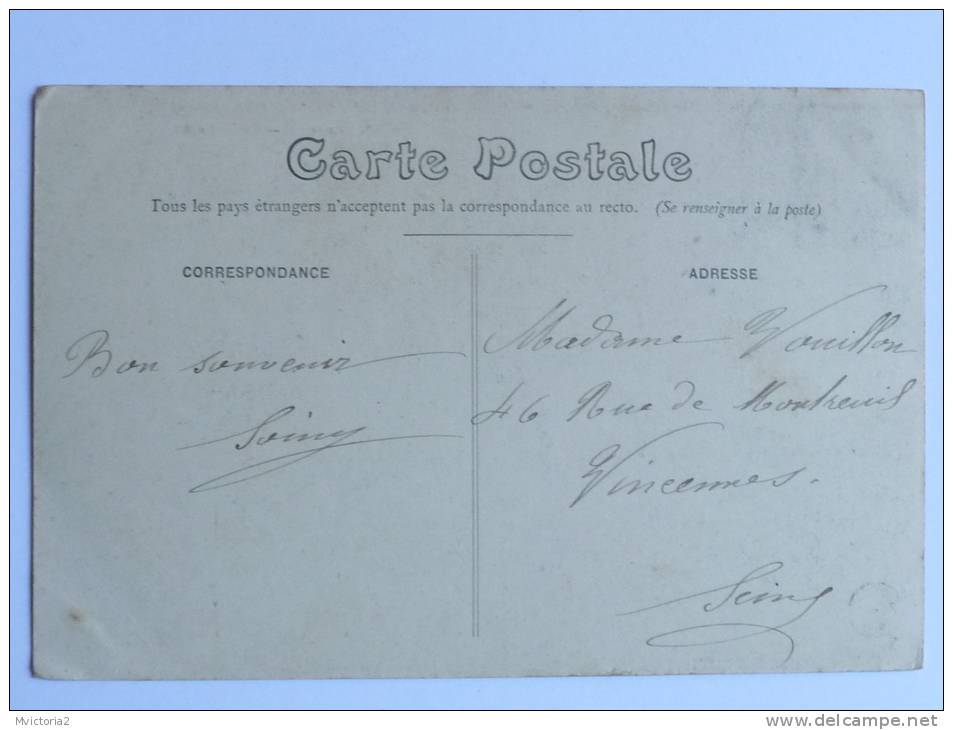 Carte Postale
Tous les pays étrangers n'acceptent pas la correspondance au recto. (Se renseigner à la poste)
CORRESPONDANCE
Bon souvenir
ADRESSE
Madame Vouillon
46 Rue de Montreuil
Vincennes.
Seine
Mvictoria2
www.delcampe.net